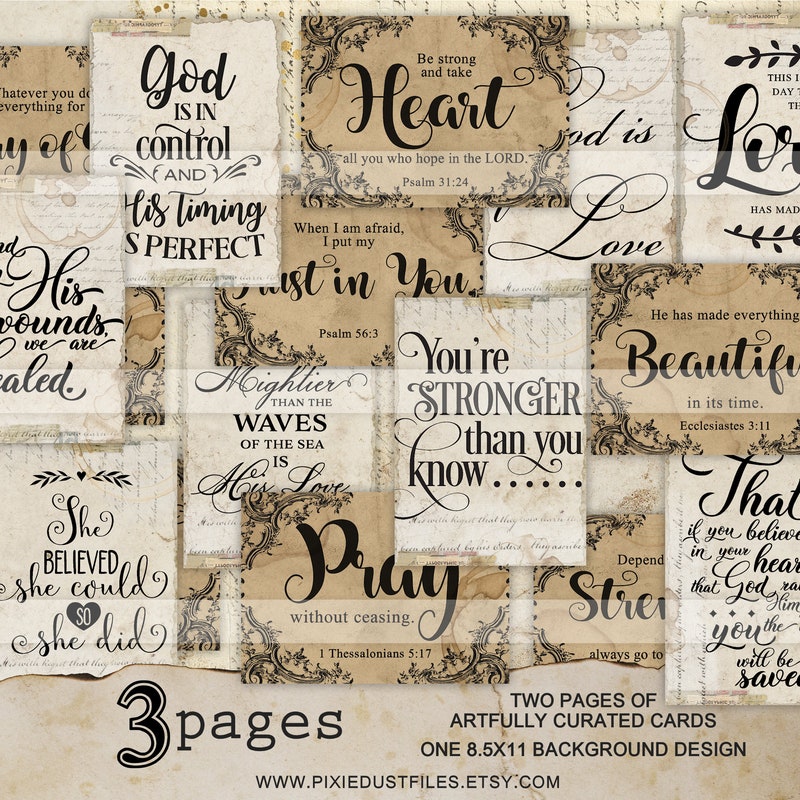 Whatever you do
everything for
God
IS IN
control
AND
His timing
IS PERFECT
Be strong
and take
Heart
all you who hope in the LORD.
Psalm 31:24
God is
Love
THIS I
DAY T
TH
Lor
HAS MADE
His
wounds,
we are
healed.
When I am afraid,
I put my
Trust in You
Psalm 56:3
He has made everything
Beautiful
in its time.
Ecclesiastes 3:11
Mightlier
THAN THE
WAVES
OF THE SEA
IS
His Love
You're
STRONGER
than you
know......
She
BELIEVED
she could
SO
she did
Pray
without ceasing.
1 Thessalonians 5:17
Depend
Stren
always go to
That
if you believe
in your
heart
that God
Him
you
the
will be
saved
3 pages
TWO PAGES OF
ARTFULLY CURATED CARDS
ONE 8.5X11 BACKGROUND DESIGN
WWW.PIXIEDUSTFILES.ETSY.COM